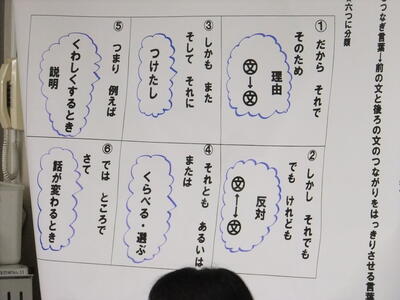 つなぎ言葉→前の文と後ろの文のつながりをはっきりさせる言葉
六つに分類
① だから それで
そのため
理由
文→文
② しかし それでも
でも けれども
反対
文←→文
③ しかも また
そして それに
つけたし
④ それとも あるいは
または
くらべる・選ぶ
⑤ つまり 例えば
くわしくするとき
説明
⑥ では ところで
さて
話が変わるとき